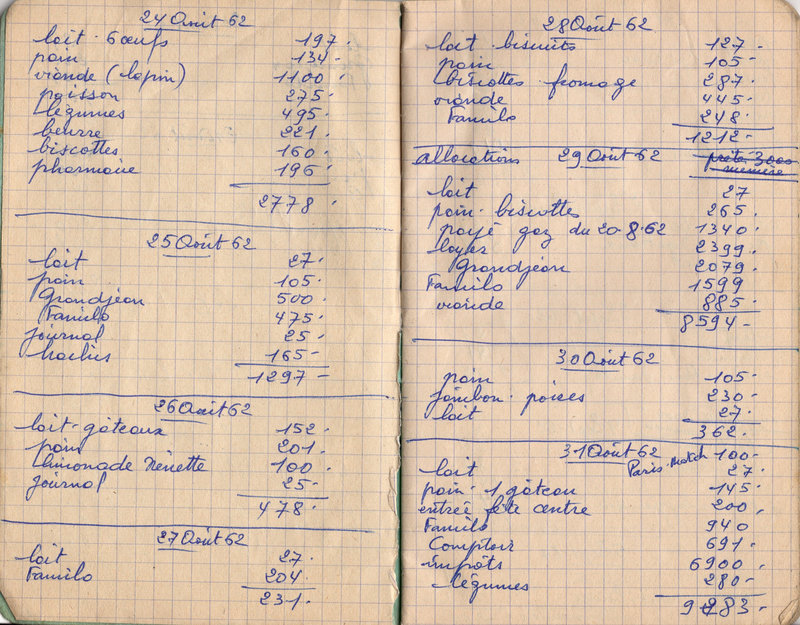 24 Août 62
lait 6 œufs 197.
pain 134-
viande (lapin) 1100.
poisson 275.
légumes 495.
beurre 221.
biscottes 160.
pharmacie 196
2778.
25 Août 62
lait 27.
pain 105-
Grandjéan 500.
Familo 475.
journal 25-
165-
1297-
26 Août 62
lait-gâteaux 152.
pain 201.
limonade Nénette 100.
journal 25-
478.
27 Août 62
lait 27.
Familo 204.
231.
28 Août 62
lait biscuits 127-
pain 105-
biscottes fromage 287.
viande 445-
Familo 248.
1212-
allocations 29 Août 62 prêté 3000
mémère
lait 27
pain-biscottes 265.
payé gaz du 20.8.62 1340.
loyer 2399.
Grandjean 2079.
Familo 1599
viande 885.
8594-
30 Août 62
pain 105-
jambon-poires 230-
lait 27.
362.
31 Août 62
Paris-Match 100-
lait 27.
pain-1 gâteau 145-
entrée fête centre 200.
Familo 940
Comptoir 691.
impôts 6900
légumes 280-
9283-